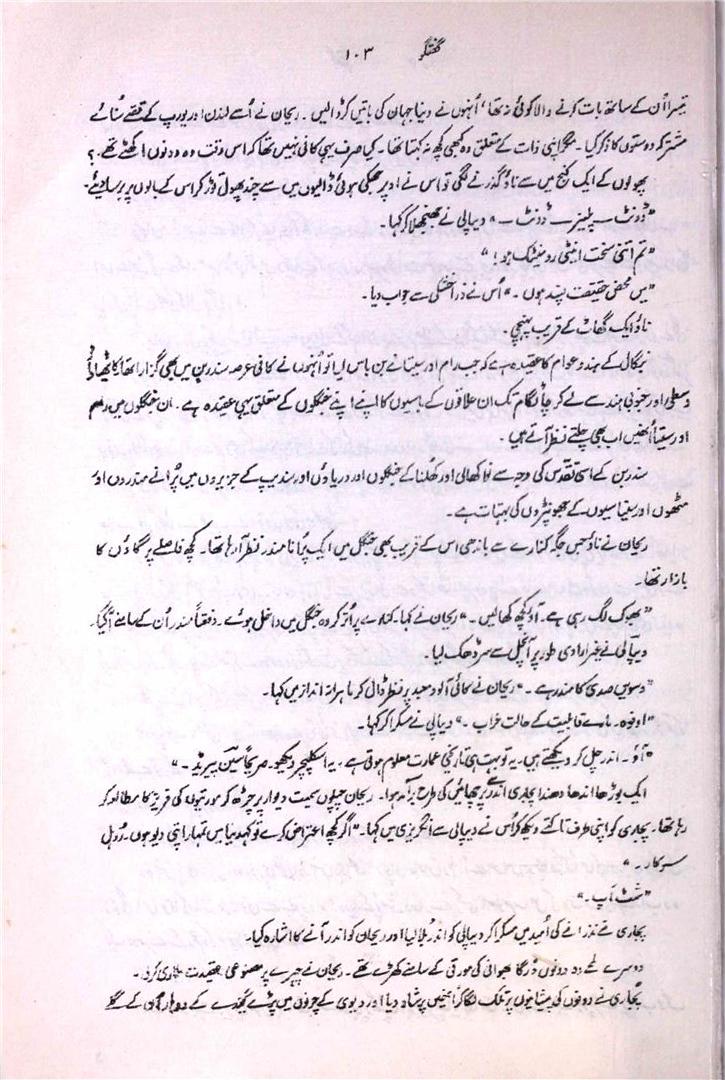 گفتگو ۱۰۳
تیسرا اُن کے ساتھ بات کرنے والا کوئی نہ تھا، اُنہوں نے دنیا جہان کی باتیں کر ڈالیں۔ ریحان نے اُسے لندن اور یورپ کے قصے سُنائے
مشترکہ دوستوں کا ذکر کیا۔ مگر اپنی ذات کے متعلق وہ کبھی کچھ نہ کہتا تھا۔ کیا صرف یہی کافی نہیں تھا کہ اس وقت وہ دونوں اکٹھے تھے۔؟
پھولوں کے ایک کنج میں سے ناؤ گذرنے لگی تو اس نے اوپر جھکی ہوئی ڈالیوں میں سے چند پھول توڑ کر اس کے بالوں پر برسا دیئے۔
"ڈونٹ۔ پلیز۔ ڈونٹ۔" دیپالی نے جھنجھلا کر کہا۔
"تم اتنی سخت اینٹی رومنٹک ہو!"
"میں محض حقیقت پسند ہوں۔" اُس نے ذرا خفگی سے جواب دیا۔
ناؤ ایک گھاٹ کے قریب پہنچی۔
بنگال کے ہندو عوام کا عقیدہ ہے کہ جب رام اور سیتا نے بن باس لیا تو اُنہوں نے کافی عرصہ سندر بن میں بھی گزارا تھا
وسطی اور جنوبی ہند سے لے کر چاٹگام تک ان علاقوں کے باسیوں کا اپنے اپنے جنگلوں کے متعلق یہی عقیدہ ہے۔ ان جنگلوں میں رام
اور سیتا اُنھیں اب بھی چلتے نظر آتے ہیں۔
سندر بن کے اسی تقدّس کی وجہ سے نواکھالی اور کھلنا کے جنگلوں اور دریاؤں اور سندیپ کے جزیروں میں پُرانے مندروں اور
مٹھوں اور سنیاسیوں کے جھونپڑوں کی بہتات ہے۔
ریحان نے ناؤ جس جگہ کنارے سے باندھی اس کے قریب بھی جنگل میں ایک پُرانا مندر نظر آ رہا تھا۔ کچھ فاصلے پر گاؤں کا
بازار تھا۔
"بھوک لگ رہی ہے۔ آؤ کچھ کھا لیں۔" ریحان نے کہا۔ کنارے پر اُتر کر وہ جنگل میں داخل ہوئے۔ دفعتاً مندر اُن کے سامنے آ گیا۔
دیپالی نے غیر ارادی طور پر آنچل سے سر ڈھک لیا۔
"دسویں صدی کا مندر ہے۔" ریحان نے کائی آلود معبد پر نظر ڈال کر ماہرانہ انداز میں کہا۔
"اوفوہ۔ مارے قابلیت کے حالت خراب۔" دیپالی نے مسکرا کر کہا۔
"آؤ۔ اندر چل کر دیکھتے ہیں۔ یہ تو بہت ہی تاریخی عمارت معلوم ہوتی ہے۔ یہ اسکلپچر دیکھو۔ صریحاً سین پیریڈ۔"
ایک بوڑھا اندھا دھندا پجاری اندر سے پرچھائیں کی طرح برآمد ہوا۔ ریحان چپلوں سمیت دیوار پر چڑھ کر مورتیوں کی فریز کا مطالعہ کر
رہا تھا۔ پجاری کو اپنی طرف تاکتے دیکھ کر اُس نے دیپالی سے انگریزی میں کہا۔ "اگر کچھ اعتراض کرے تو کہدینا میں تمہارا پتی دیو ہوں۔
سرکار۔"
"شٹ اَپ۔"
پجاری نے نذرانے کی اُمید میں مسکرا کر دیپالی کو اندر بُلا لیا اور ریحان کو اندر آنے کا اشارہ کیا۔
دوسرے لمحے وہ دونوں درگا بھوانی کی مورتی کے سامنے کھڑے تھے۔ ریحان نے چہرے پر مصنوعی عقیدت طاری کر لی۔
پجاری نے دونوں کی پیشانیوں پر تلک لگا کر انہیں پرشاد دیا اور دیوی کے چرنوں میں پڑے گیندے کے دو ہار اُن کے گلے